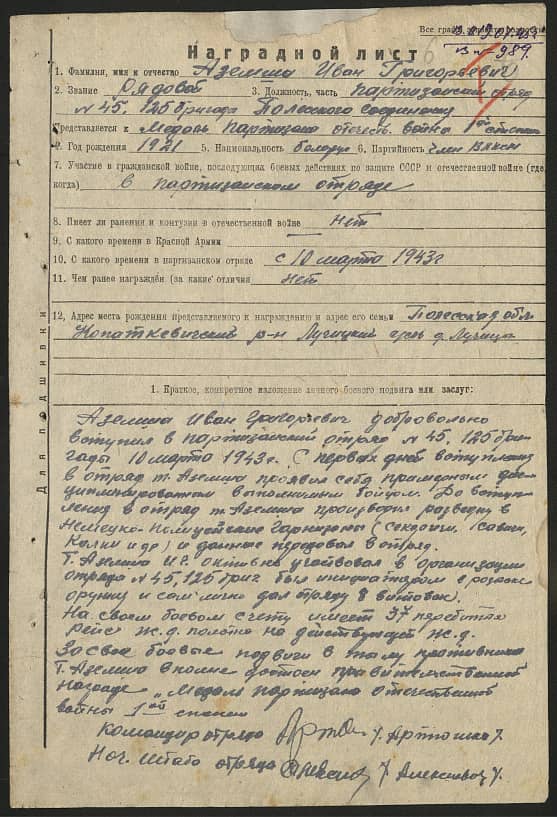 Все гра
Наградной лист
1. Фамилия, имя и отчество Аземша Иван Григорьевич
2. Звание Рядовой 3. Должность, часть партизанский отряд
№ 45, 125 бригада Полесского соединения
Представляется к Медаль партизана отечеств. войны 1ой степени
4. Год рождения 1921 5. Национальность белорус 6. Партийность член
7. Участие в гражданской войне, последующих боевых действиях по защите СССР и отечественной войне (где,
когда) в партизанском отряде
8. Имеет ли ранения и контузии в отечественной войне нет
9. С какого времени в Красной Армии
10. С какого времени в партизанском отряде с 10 марта 1943г
11. Чем ранее награждён (за какие отличия нет
12, Адрес места рождения представляемого к награждению и адрес его семьи Полесская обл
Копаткевичский р-н Лучицкий д. Лучицы
1. Краткое, конкретное изложение личного боевого подвига или заслуг:
Аземша Иван Григорьевич добровольно
вступил в партизанский отряд № 45, 125 бри-
гады 10 марта 1943 г. С первых дней вступления
в отряд т. Аземша проявил себя
бойцом. До вступ-
ления в отряд т. Аземша производил разведку в
Немецко-Полицейские гарнизоны (
и др) и данные передовал в отряд.
Т. Аземша И.Г. активно участвовал в организации
отряда № 45, 125 бриг был инициатором в
оружия и сам лично дал отряду 8 винтовок.
На своем боевом счету имеет 37 перебитых
Рельс ж.д. полотна на действующей ж.д.
За свое боевые подвиги в тылу противника
Т. Аземша вполне достоен правительственной
награде "Медаль партизана отечественной
войны 1ой степени
Командир отряда /Артюшко/.
Нач. штаба отряда /
Для подшивки